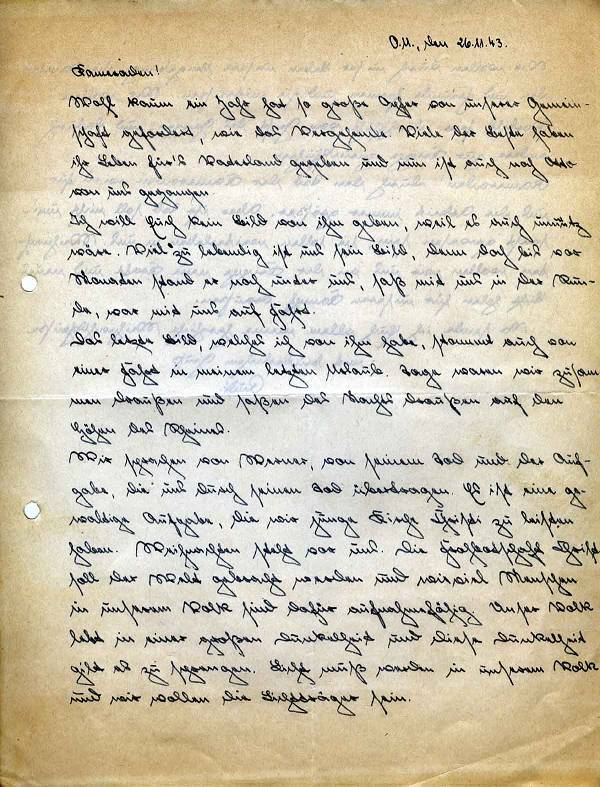 O.U., den 26.11.43.
Kameraden!
Wohl kaum ein Jahr hat so große Opfer von unserer Gemein-
schaft gefordert, wie das Vergehende. Viele der Besten haben
ihr Leben für's Vaterland gegeben und nun ist auch noch Otto
von uns gegangen.
Ich will Euch kein Bild von ihm geben, weil es auch unnütz
wäre. Viel zu lebendig ist uns sein Bild, denn doch bis vor
Monaten stand er noch unter uns, saß mit uns in der Run-
de, war mit uns auf Fahrt.
Das letzte Bild, welches ich von ihm habe, stammt auch von
einer Fahrt in meinem letzten Urlaub. Tage waren wir zusam
men draußen und saßen des Nachts draußen auf den
Höhen des Rheines.
Wir sprachen von Werner, von seinem Tod und der Auf-
gabe, die uns durch seinen Tod übertragen. Es ist eine ge-
waltige Aufgabe, die wir junge Kirche Christi zu leisten
haben. Weihnachten steht vor uns. Die Frohbotschaft Christi
soll der Welt gebracht werden und wieviel Menschen
in unserem Volk sind dafür aufnahmefähig. Unser Volk
lebt in einer großen Dunkelheit und diese Dunkelheit
gilt es zu sprengen. Licht muß werden in unserem Volk
und wir wollen die Lichtträger sein.